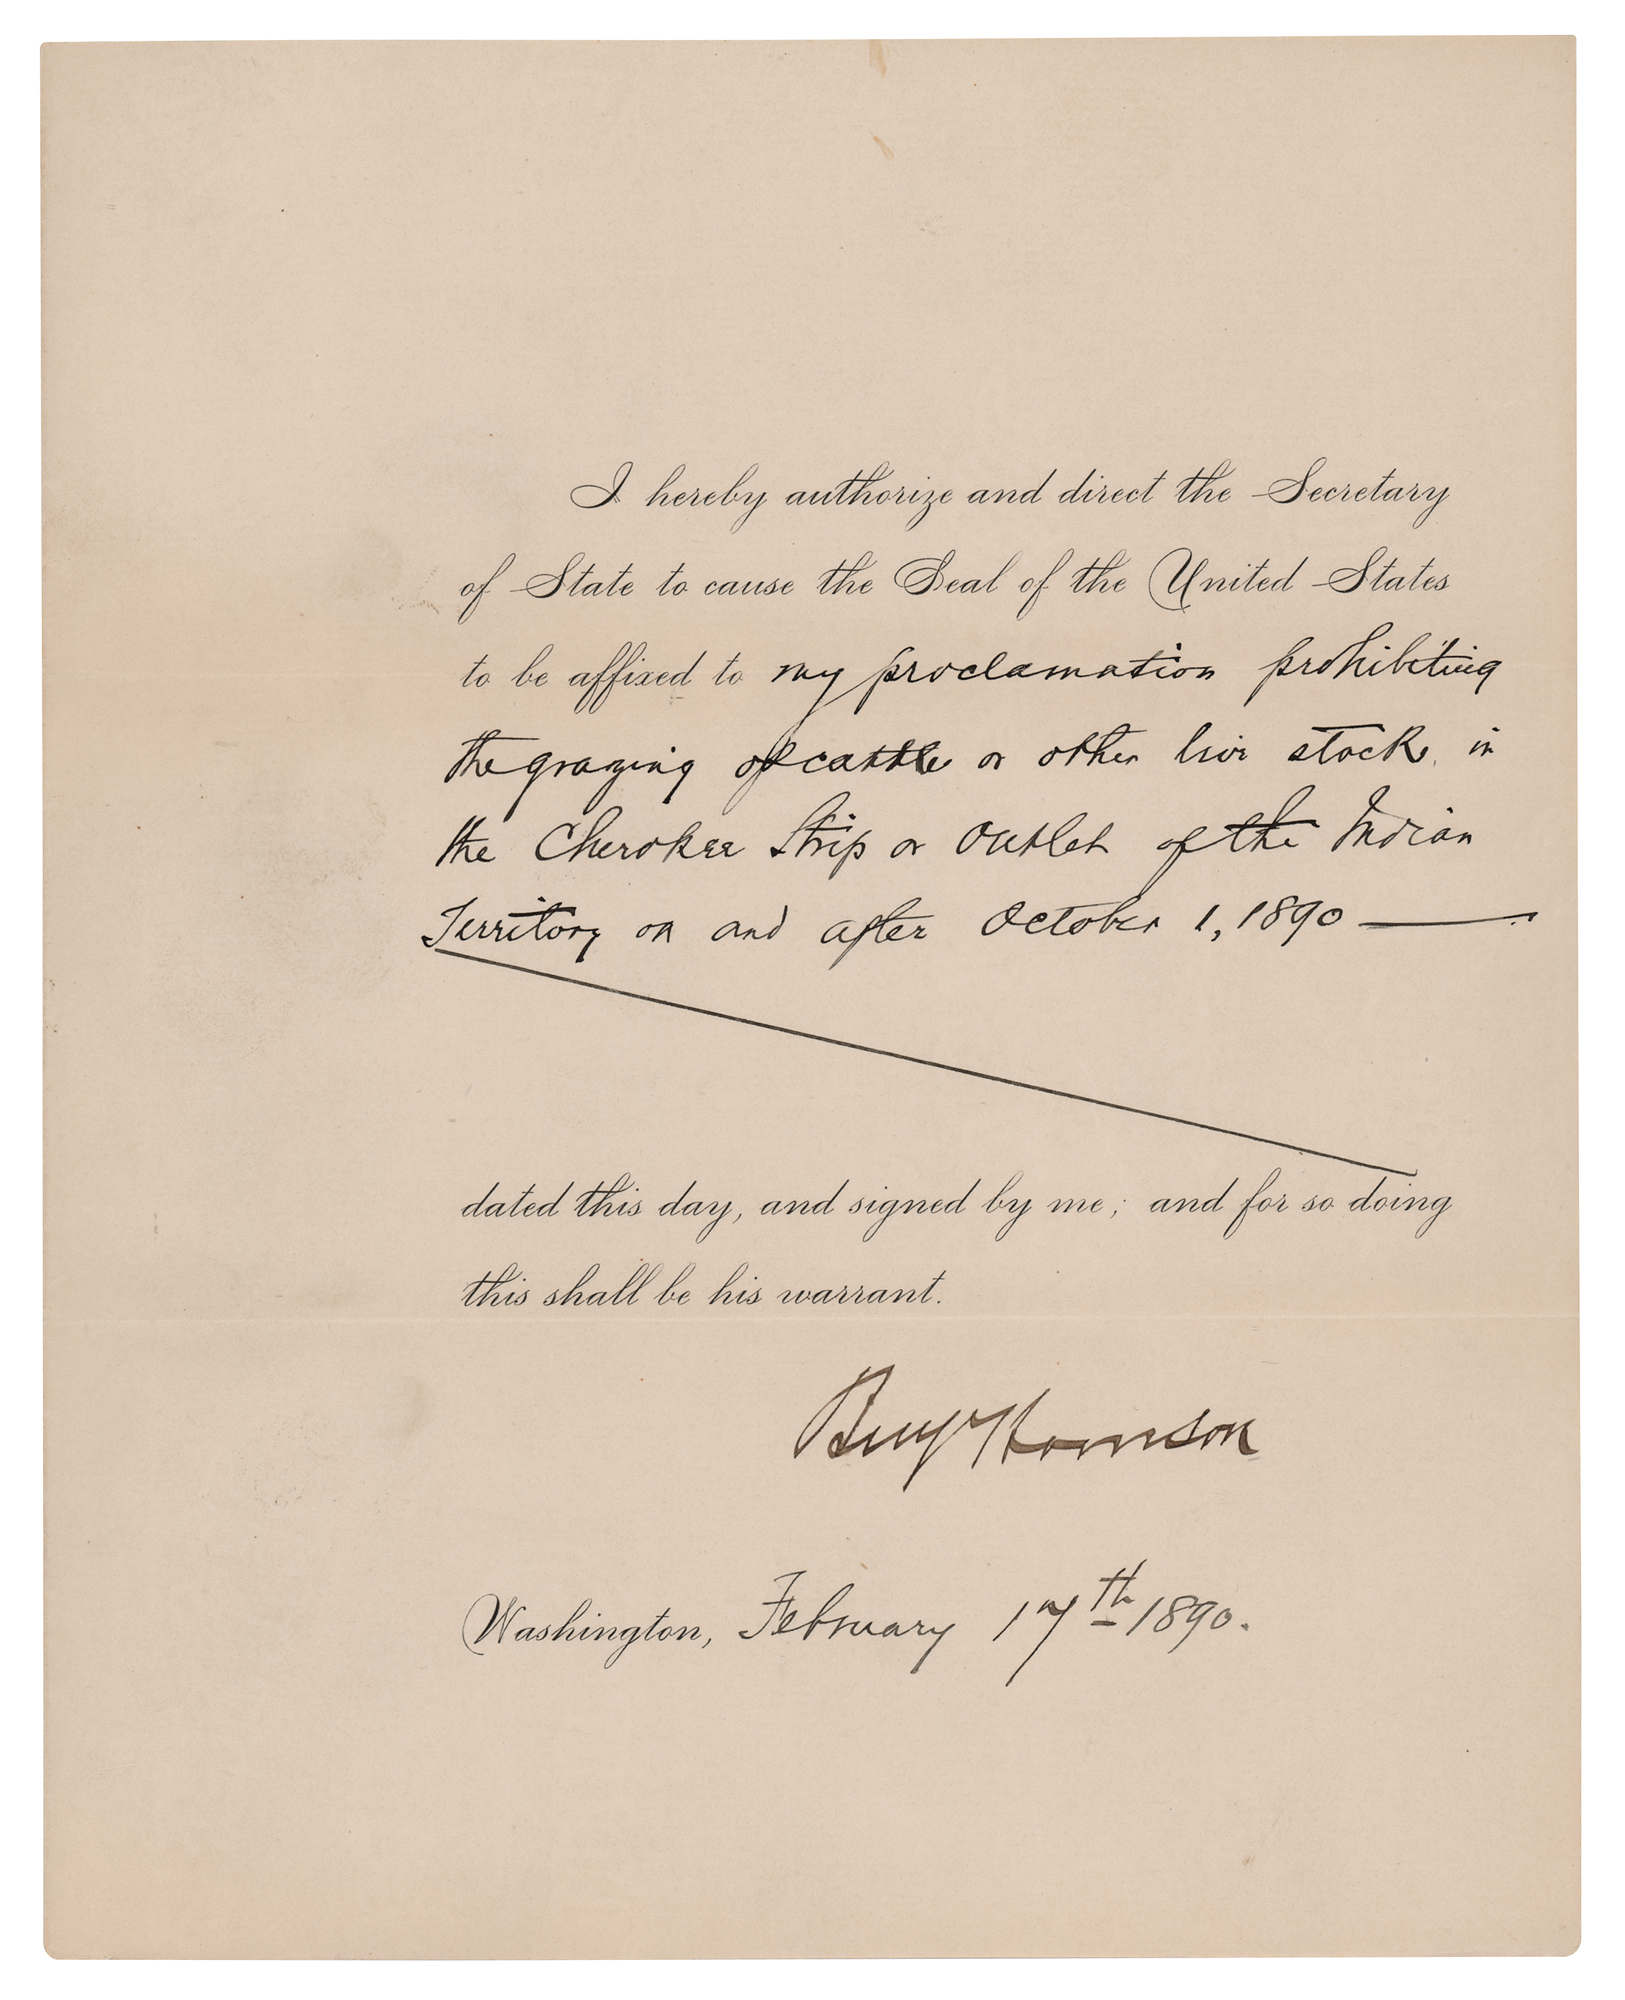 I hereby authorize and direct the Secretary
of State to cause the Seal of the United States
to be affixed to my proclamation prohibiting
the grazing of cattle or other live stock in
the Cherokee Strip or Outlet of the Indian
Territory on and after October 1, 1890
dated this day, and signed by me; and for so doing
this shall be his warrant.
Benj Harrison
Washington, February 17th 1890.